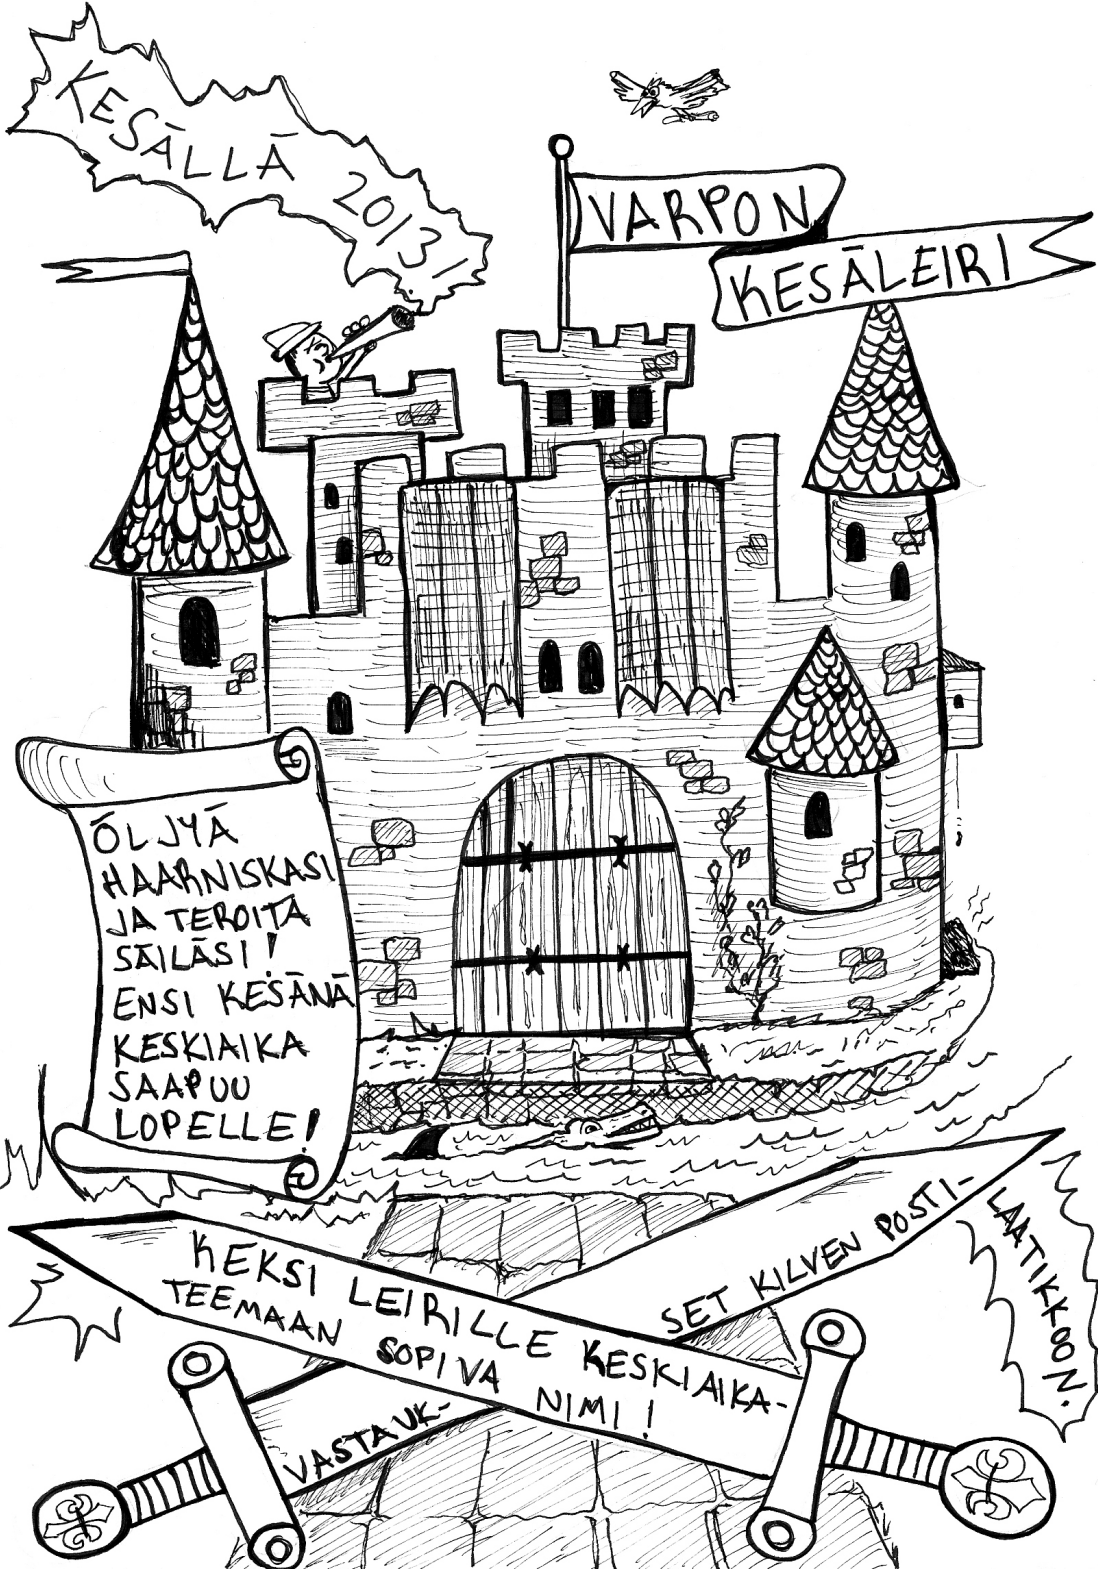 KESÄLLÄ 2013!
VARPON
KESÄLEIRI
ÖLJYÄ
HAARNISKASI
JA TEROITA
SÄILÄSI!
ENSI KESÄNÄ
KESKIAIKA
SAAPUU
LOPELLE!
KEKSI LEIRILLE KESKIAIKA-
TEEMAAN SOPIVA NIMI!
VASTAUK-
SET KILVEN POSTI-
LAATIKKOON.